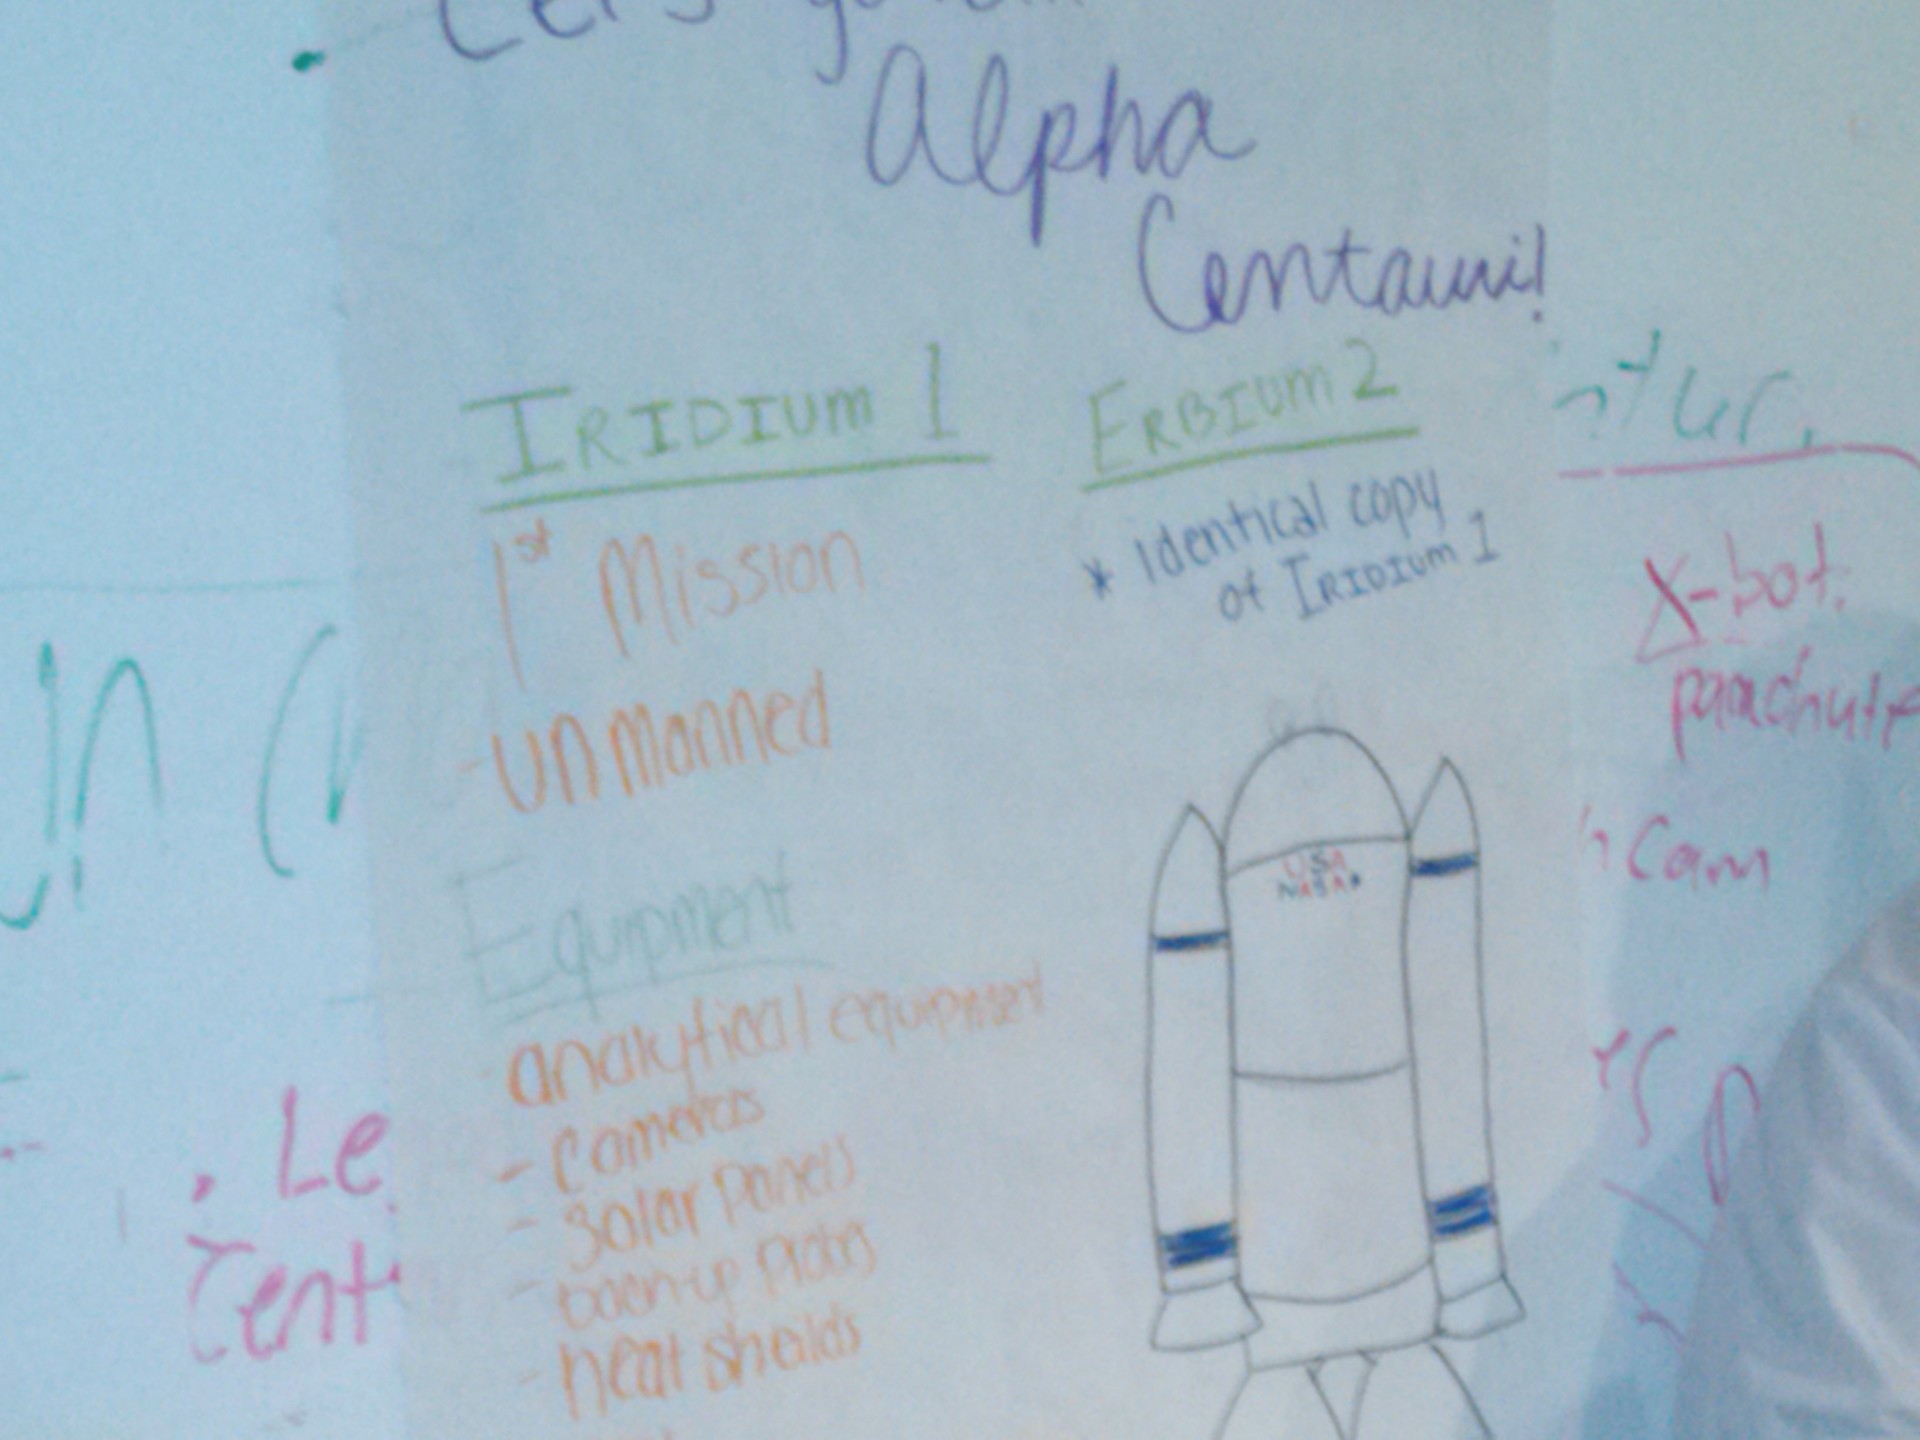 Let's go to
Alpha
Centauri!
IRIDIUM 1
1st Mission
- unmanned
Equipment
analytical equipment
- cameras
- solar panels
- back-up plans
- heat sheilds
ERBIUM 2
* identical copy
of IRIDIUM 1
USA
NASA
X-bot
parachute
Cam
. Le
Cent